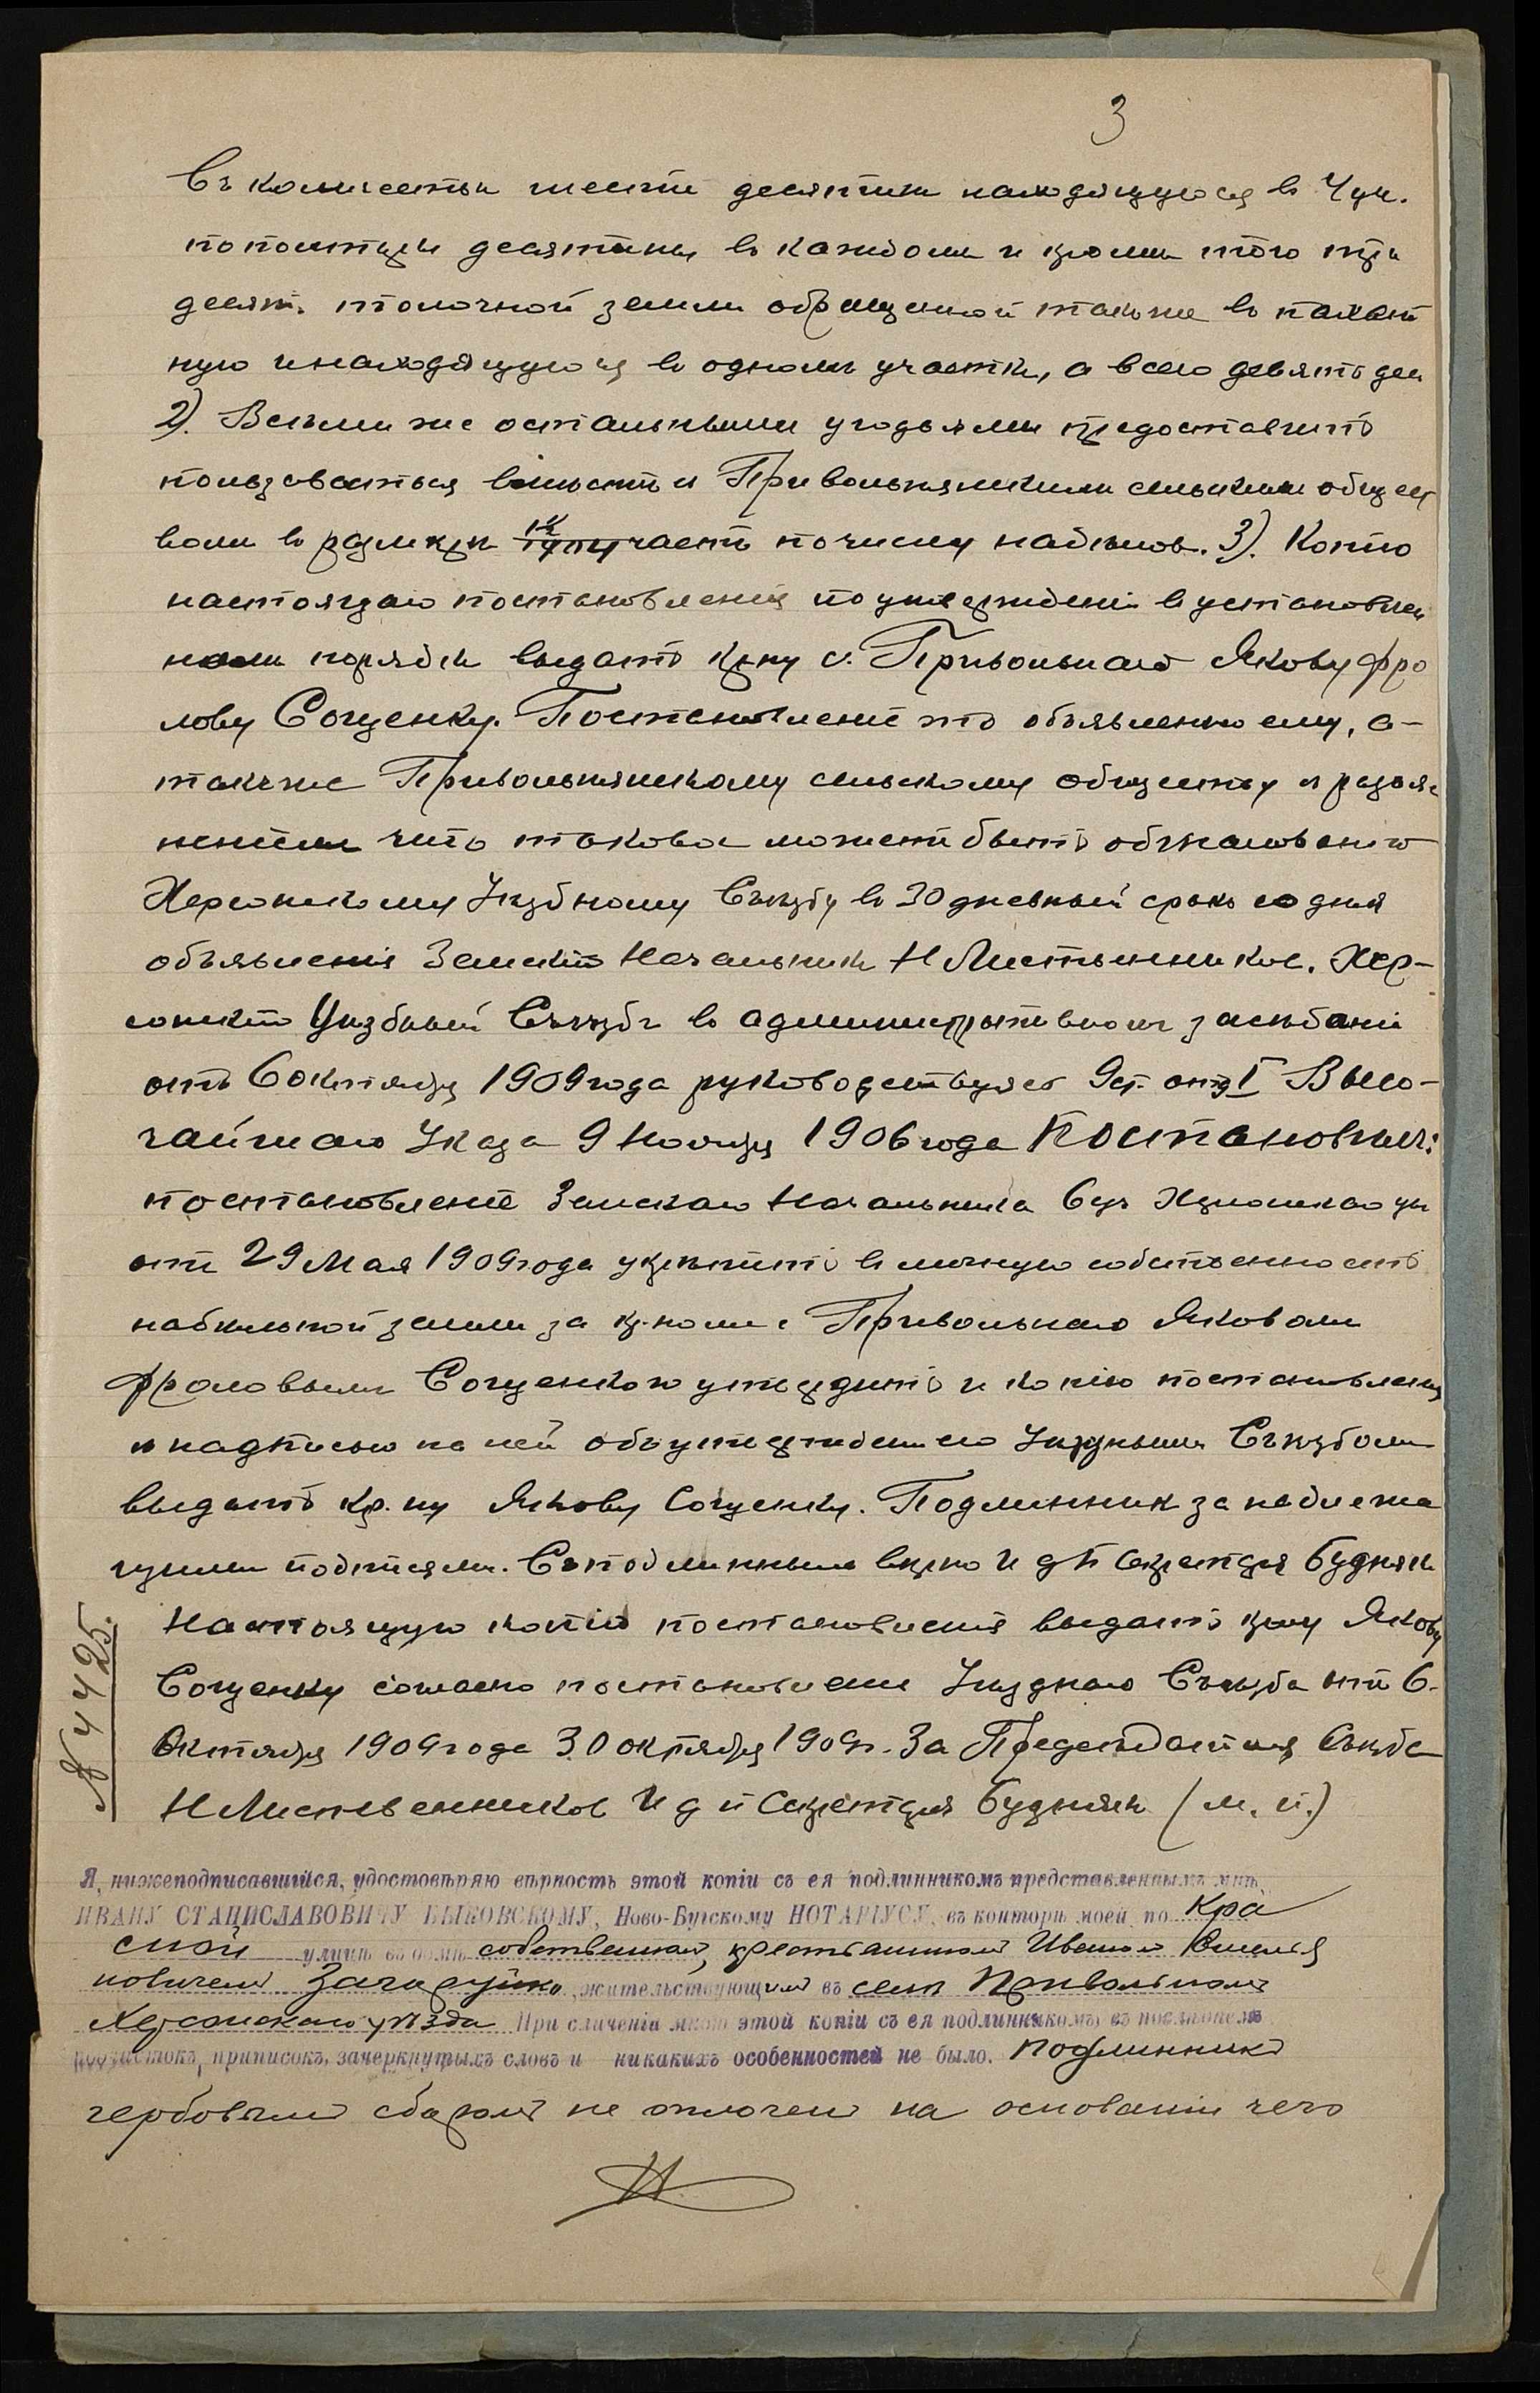 3
въ количествѣ шести десятинъ находящуюся в 4 уч.
по полторы десятины въ каждомъ и кромѣ того три
десят. толочной земли обращенной также въ пахат
ную и находящуюся въ одномъ участкѣ, а всего девять дес
2). Всѣми же остальными угодьями предоставить
пользоваться вмѣстѣ съ Привольнянскимъ сельскимъ общест
вомъ въ размѣрѣ части по числу надѣловъ. 3). Копію
настоящаго постановленія по утвержденіи въ установлен
номъ порядкѣ выдать кр-ну с. Привольнаго Якову Фро
лову Сощенку. Постановленіе это объявлено ему, а-
также Привольнянскому сельскому обществу съ разъяс
неніемъ что таковое можетъ быть обжаловано
Херсонскому Уѣздному Съѣзду въ 30 дневный срокъ со дня
объявленія Земскій Начальникъ Н Листвинниковъ. Хер-
сонскій Уѣздный Съѣздъ въ административномъ засѣданіи
отъ 6 октября 1909 года руководствуясь 9 ст. отд I Высо-
чайшаго Указа 9 Ноября 1906 года Постановилъ:
постановленіе Земскаго Начальника 6 уч Херсонскаго уѣ
отъ 29 Мая 1909 года укрѣпить въ личную собственность
надѣльной земли за кр-номъ с Привольнаго Яковомъ
Фроловымъ Сощенкою утвердить и копію постановленія
съ надписью на ней объ утвержденіи его Уѣзднымъ Съѣздомъ
выдать кр. ну Якову Сощенку. Подлинникъ за надлежа
щими подписями. Съ подлиннымъ вѣрно И д п Секретаря Будняк
Настоящую копію постановленія выдать кр-ну Якову
Сощенку согласно постановленія Уѣзднаго Съѣзда отъ 6.
Октября 1909 года 30 октября 1909 г. За Предсѣдателя Съѣзда
Н Лиственниковъ И д п Секретаря Будняк (м. п.)
№ 4425.
Я, нижеподписавшійся, удостовѣряю вѣрность этой копіи съ ея подлинникомъ представленнымъ мнѣ,
ИВАНУ СТАНИСЛАВОВИЧУ БЫКОВСКОМУ, Ново-Бугскому НОТАРІУСУ, въ конторѣ моей, по Кра
сной улицѣ въ домѣ собственномъ, крестьяниномъ Иваномъ Емелья
новичемъ жительствующимъ въ селѣ Привольномъ
Херсонскаго уѣзда При сличеніи мною этой копіи съ ея подлинникомъ, въ послѣднемъ
подчистокъ, приписокъ, зачеркнутыхъ словъ и никакихъ особенностей не было. Подлинникъ
гербовымъ сборомъ не оплоченъ на основаніи чего